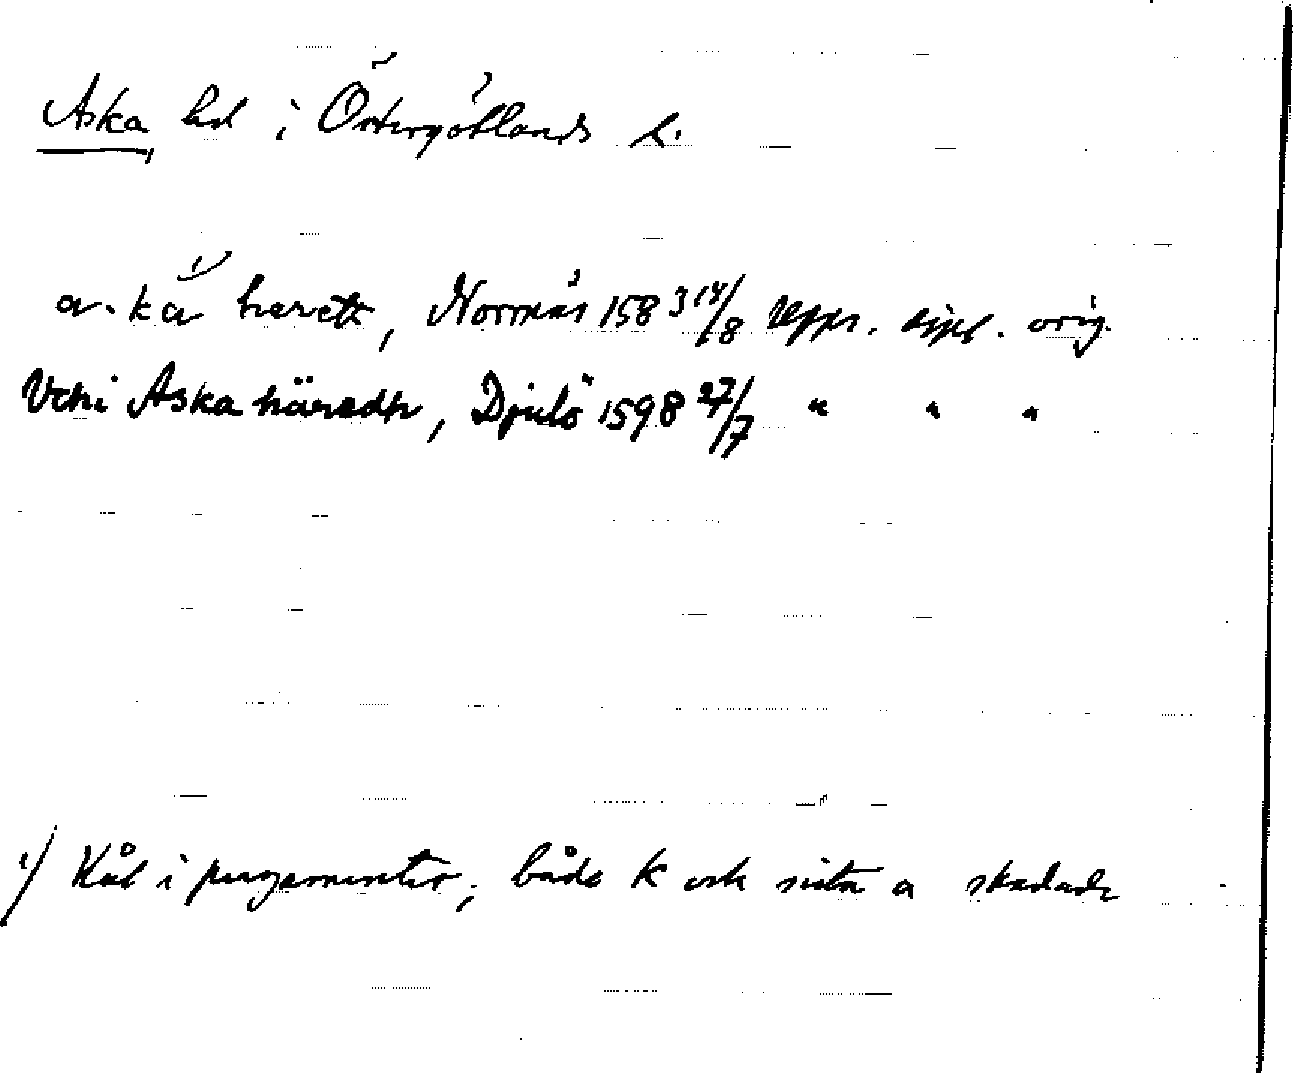 Aska, hd i Östergötlands l.
a.ka¹⁾ harett, Norrnäs 1583 14/8 Upps. dipl. orig.
Vthi Aska häredh, Djulö 1598 27/7 " " "
1) Hål i pergamentet, både k och sista a skadade